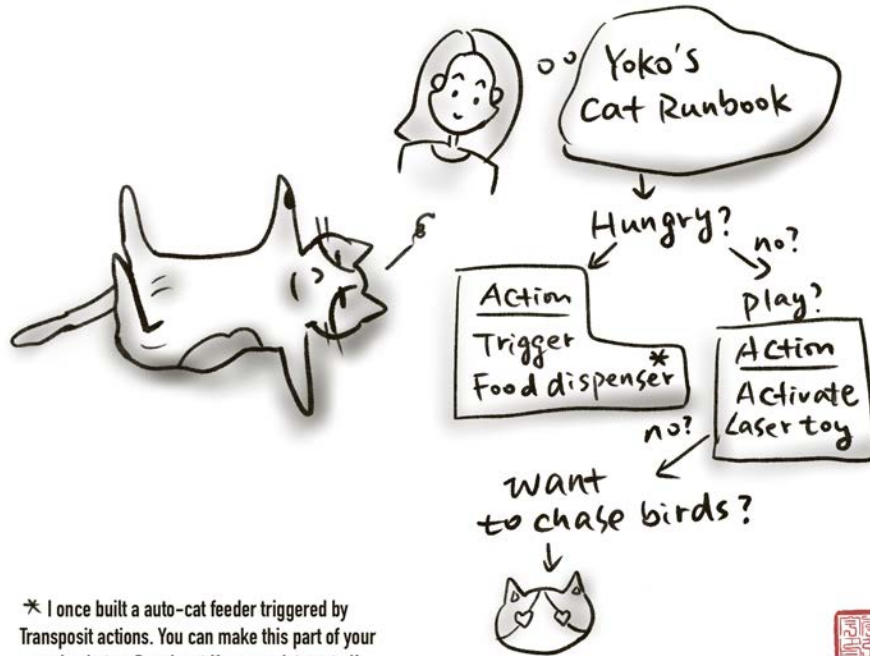 Yoko's
Cat Runbook
Hungry?
no?
Action
Trigger
Food dispenser*
play?
Action
Activate
Laser toy
no?
want
to chase birds?
* I once built a auto-cat feeder triggered by
Transposit actions. You can make this part of your